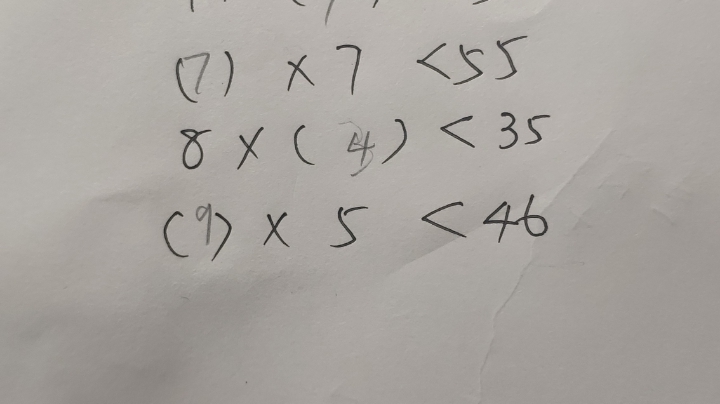 (7) × 7 < 55
8 × ( 4 ) < 35
(9) × 5 < 46